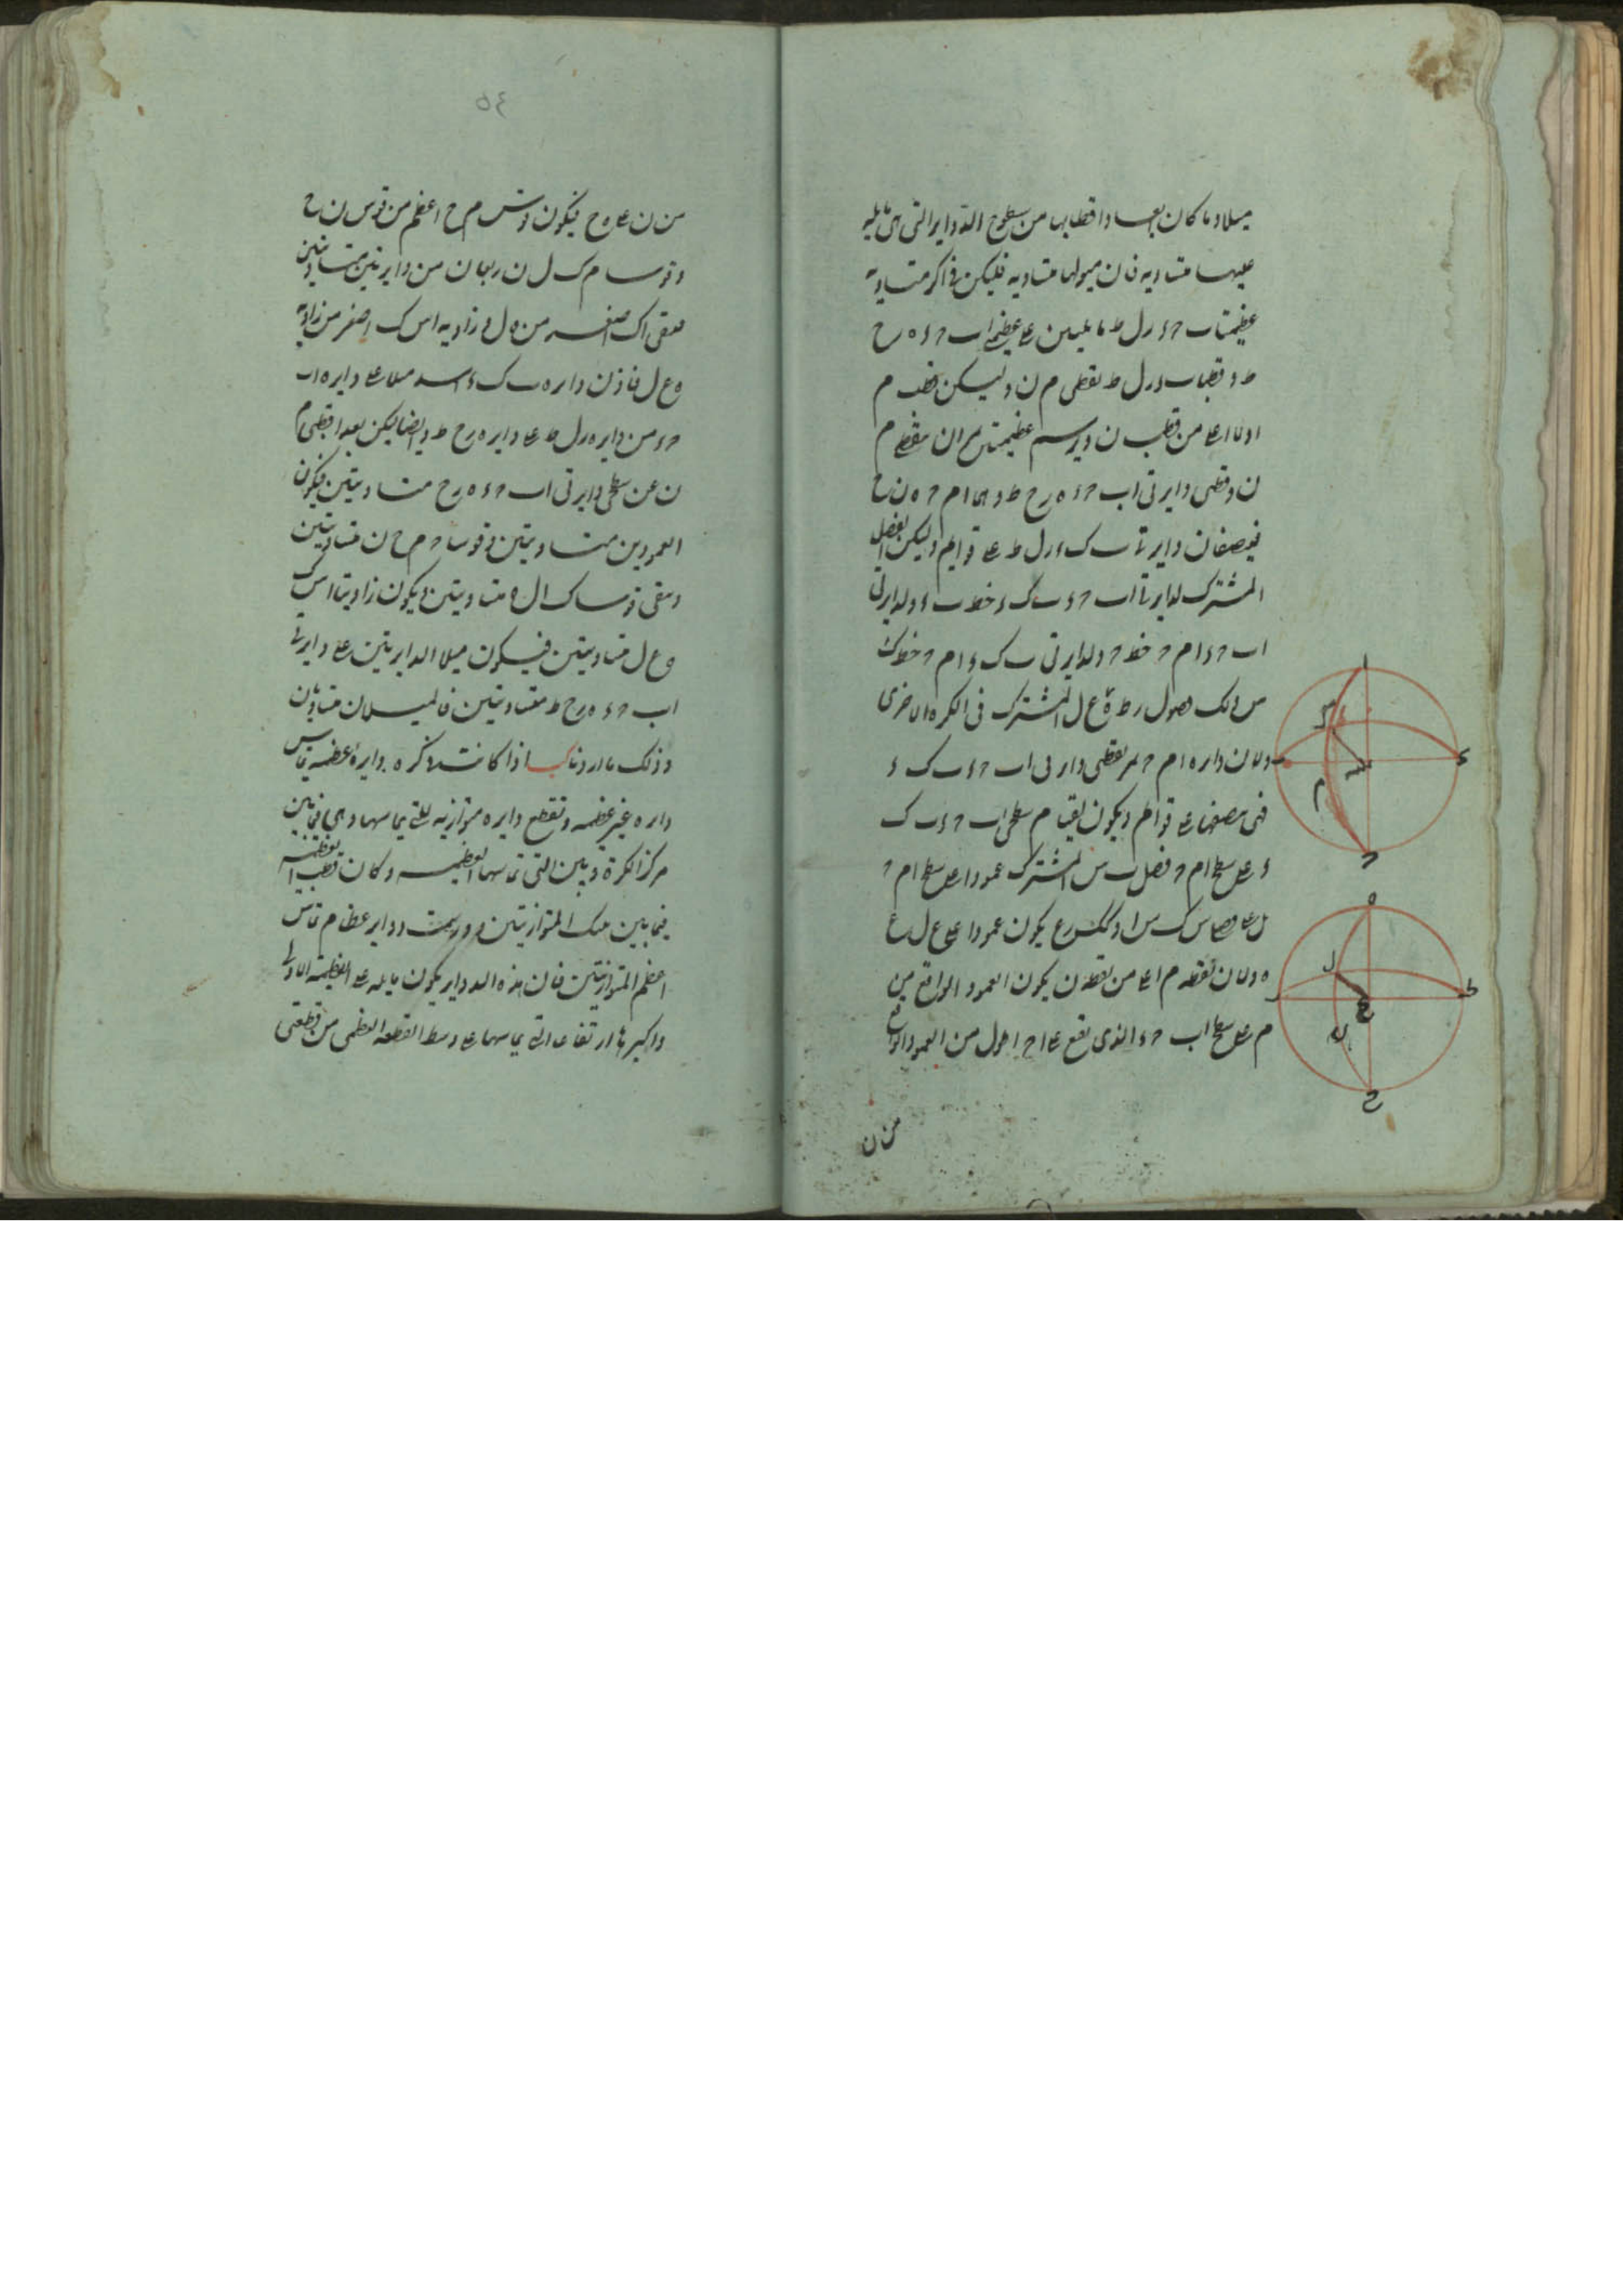 ميلا وما كان بعد اقطابها من سطوح الدواير التى هى مايله
عليها متساويه فان ميولها متساويه فليكن فى اكر متساويه
عظيمتا ب ح ء ر ل ط مايلتين على عظيمتى اب ح ء ه ر ح
ط وقطبا ب ء ر ل ط نقطتى م ن وليكن قطب م
اولا اعلى من قطب ن ونرسم عظيمتين تمران بنقطتى م
ن وقطبى دايرتى اب ح ء ه ر ح ط وهما ام ح ه ن ح
فينصفان دايرتا ب ك ء ر ل ط على قوايم وليكن الفصل
المشترك لدايرتى اب ح ء ب ك ء خط ب ء ولدايرتى
اب ح ء ام ح خط ح ولدايرتى ب ك ء ام ح خط ك
س وكذلك فصول ر ط ه ع ل المشترك فى الكره الاخرى
ولان دايره ام ح تمر بقطبى دايرتى اب ح ء ب ك ء
فهى تنصفها على قوايم ويكون لقيام سطحى اب ح ء ب ك
ء على سطح ام ح فصل ب س المشترك عمودا على سطح ام ح
بل على فصلى س ك س ا وكذلك ر ع يكون عمودا على ع ل ع
ه ولان نقطه م اعلى من نقطه ن يكون العمود الواقع من
م على سطح اب ح ء الذى يقع على اح اطول من العمود الواقع
من ن
٥٤
من ن على ه ح فيكون قوس م ح اعظم من قوس ن ح
وقوسا م ك ل ن ربعان من دايرتين متساويتين
فيبقى اك اصغر من ه ل وزاويه ا س ك اصغر من زاويه
ه ع ل فاذن دايره ب ك ء اشد ميلا على دايره اب
ح ء من دايره ر ل ط على دايره ه ر ح ط وايضا ليكن بعدا قطبى م
ن عن سطحى دايرتى اب ح ء ه ر ح متساويتين فيكون
العمودين متساويتين وقوسا ح م ح ن متساويتين
ويبقى قوسا ك ا ل ه متساويتين ويكون زاويتا ا س ك
ه ع ل متساويتين فيكون ميلا الدايرتين على دايرتى
اب ح ء ه ر ح ط متساويتين فالميلان متساويان
وذلك ما اردناه كب اذا كانت فى كره دايرة عظيمه تماس
دايره غير عظيمه وتقطع دايره موازيه للتى تماسها وهى فيما بين
مركز الكرة وبين التى تماسها العظيمه وكان قطب العظيمه
فيما بين تلك المتوازيتين ورسمت دواير عظام تماس
اعظم المتوازيتين فان هذه الدواير يكون مايله على العظيمه الاولى
واكبرها ارتفاعا التى تماسها على وسط القطعه العظمى من قطعتى
ا
ك
س
م
ب
ء
ح
ه
ل
ع
ن
ر
ط
ح